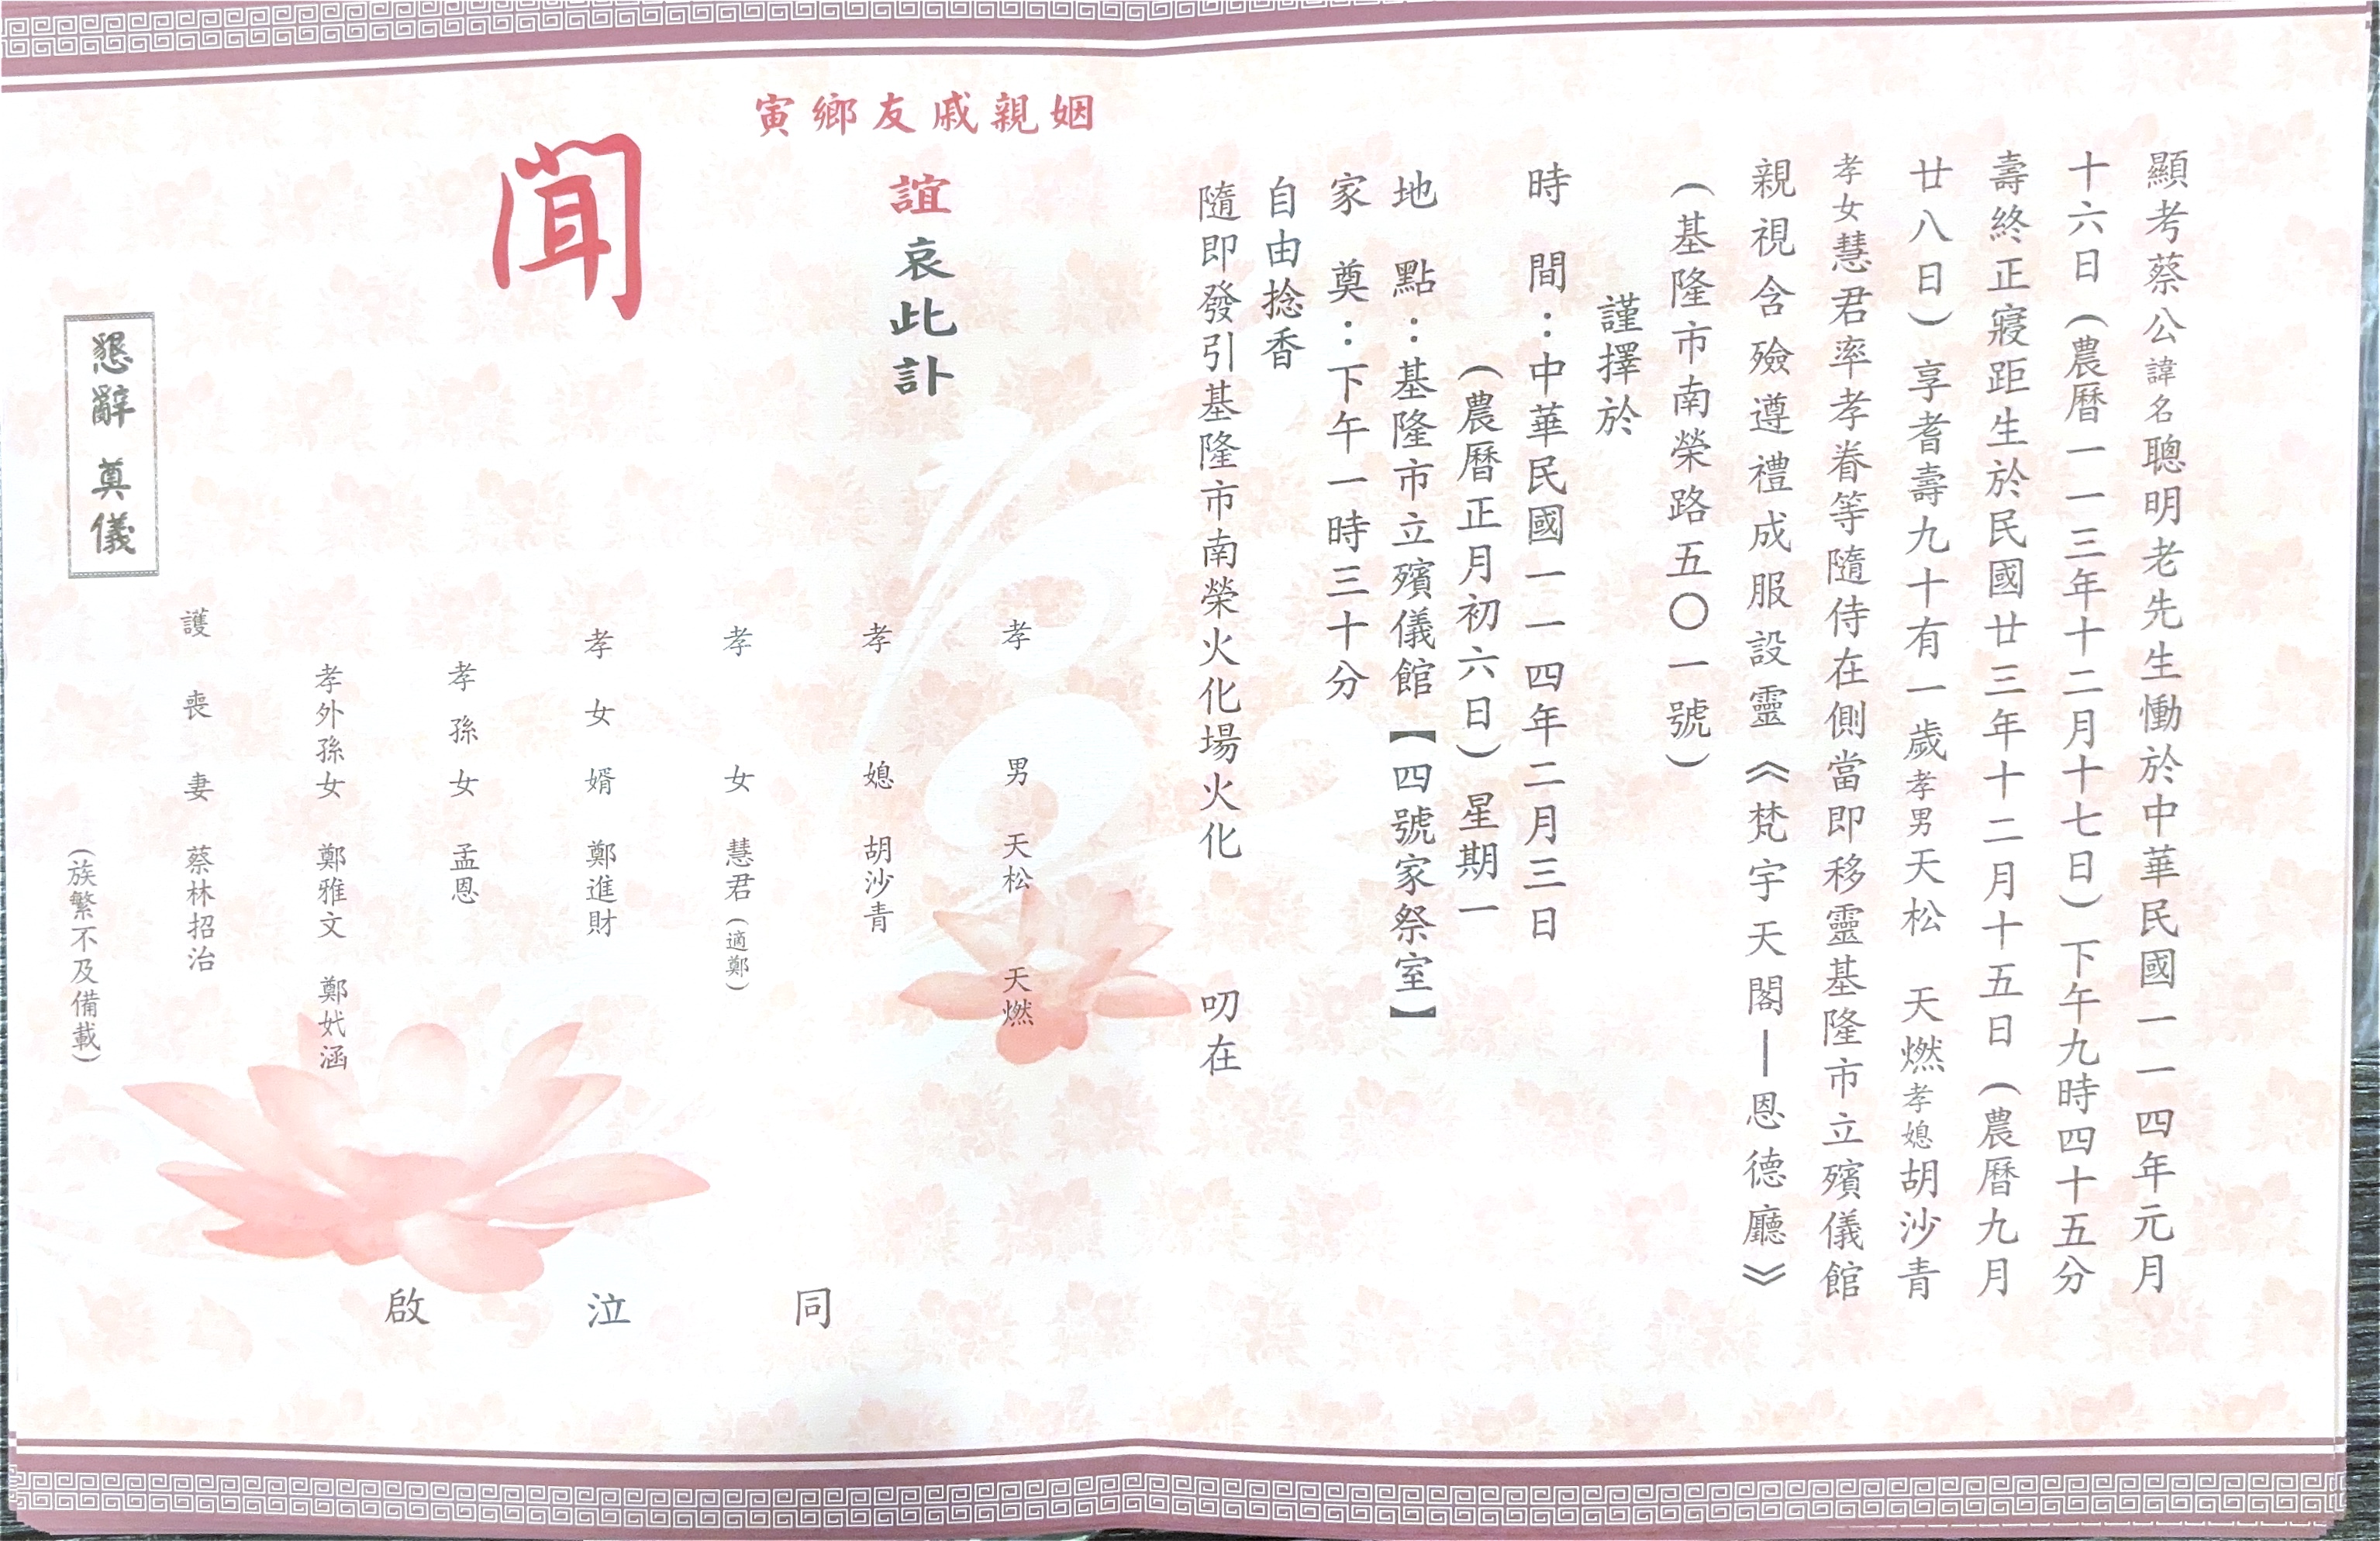 顯考蔡公諱名聰明老先生慟於中華民國一一四年元月
十六日（農曆一一三年十二月十七日）下午九時四十五分
壽終正寢距生於民國廿三年十二月十五日（農曆九月
廿八日）享耆壽九十有一歲孝男天松　天燃孝媳胡沙青
孝女慧君率孝眷等隨侍在側當即移靈基隆市立殯儀館
親視含殮遵禮成服設靈《梵宇天閣—恩德廳》
（基隆市南榮路五〇一號）
謹擇於
時　間：中華民國一一四年二月三日
（農曆正月初六日）星期一
地　點：基隆市立殯儀館【四號家祭室】
家　奠：下午一時三十分
自由捻香
隨即發引基隆市南榮火化場火化　　叨在
姻親戚友鄉寅
誼哀此訃
聞
孝男　天松　天燃
孝媳　胡沙青
孝女　慧君（適鄭）
孝女婿　鄭進財
孝孫女　孟恩
孝外孫女　鄭雅文　鄭妩涵
護喪妻　蔡林招治
（族繁不及備載）
同泣啟
懇辭　奠儀